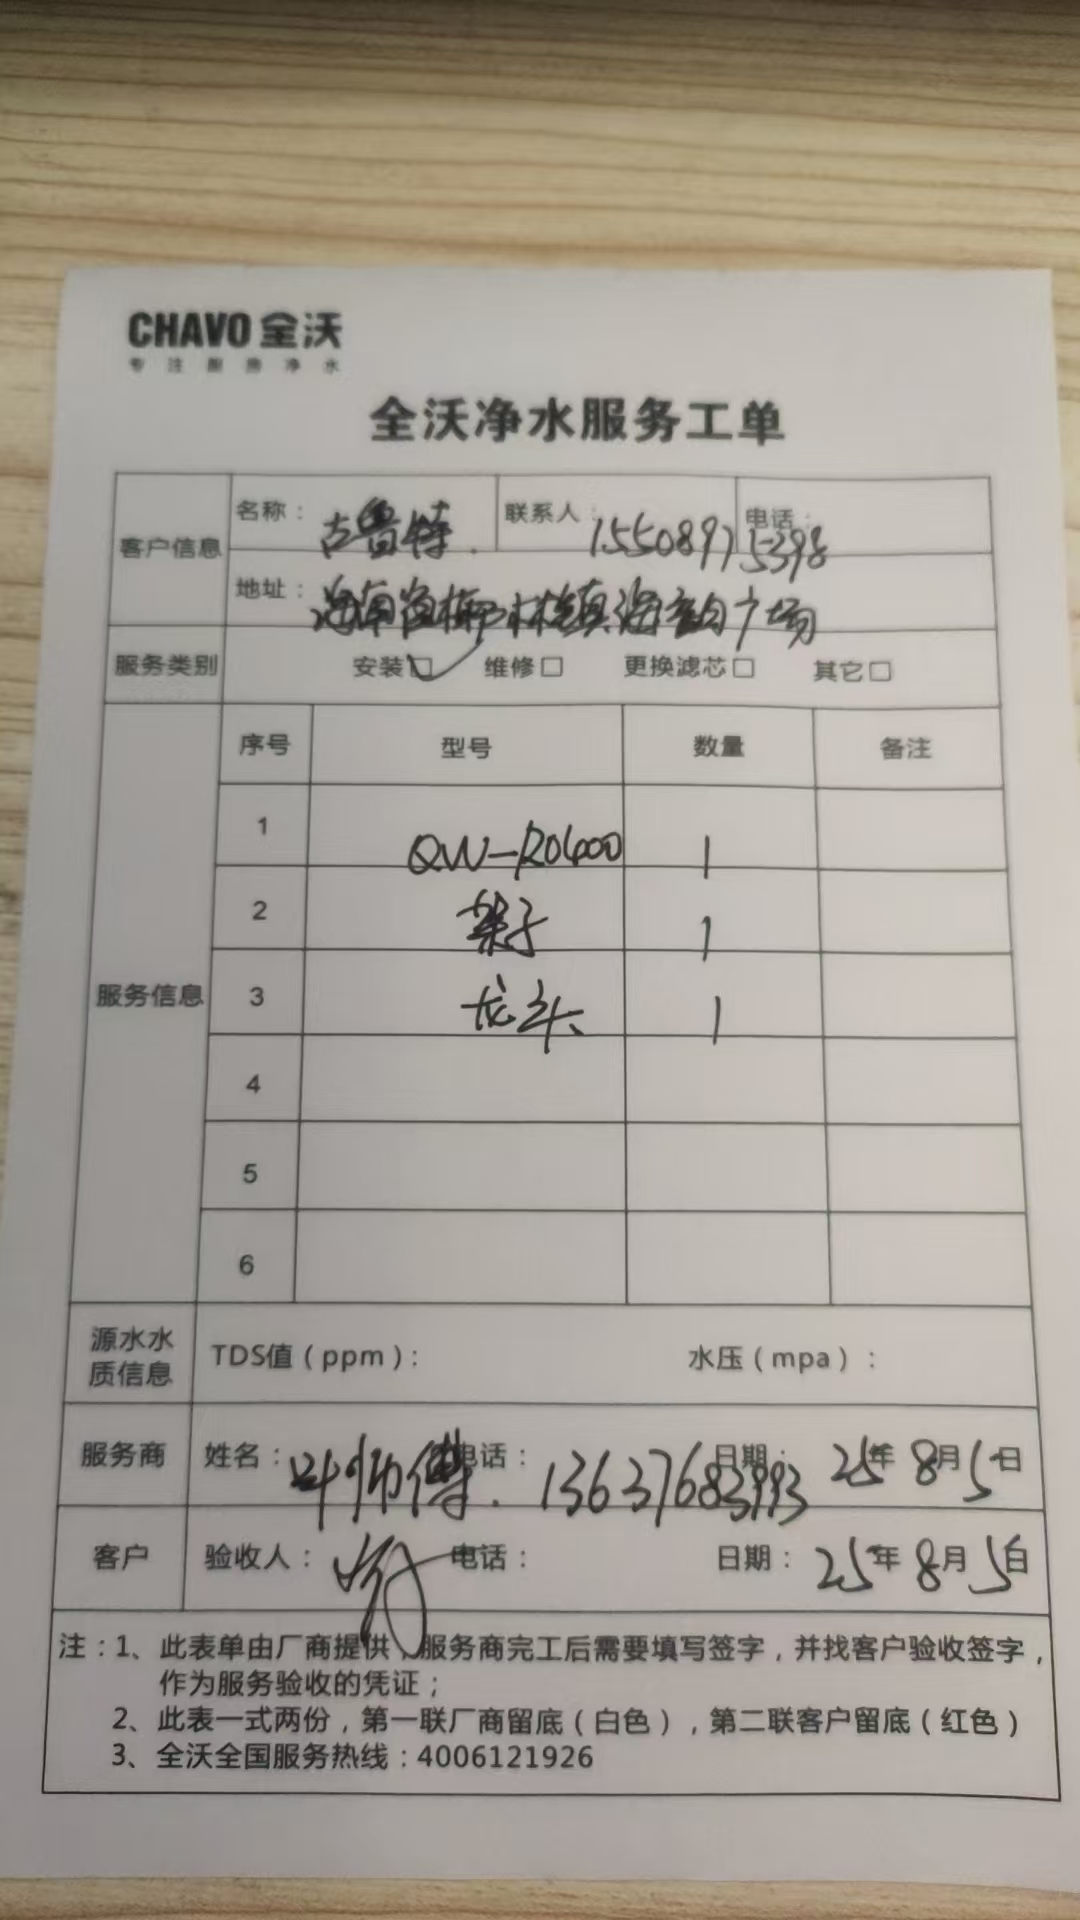 CHAVO 全沃
专注厨房净水
全沃净水服务工单
客户信息
名称： 古鲁特 联系人： 电话：
15508975398
地址： 海南省椰林镇海韵广场
服务类别 安装☑ 维修□ 更换滤芯□ 其它□
服务信息
序号 型号 数量 备注
1 QW-RO400 1
2 架子 1
3 龙头 1
4
5
6
源水水质信息 TDS值（ppm）： 水压（mpa）：
服务商 姓名： 叶师傅 电话： 13637683993 日期： 25年8月5日
客户 验收人： 电话： 日期： 25年8月5日
注：1、此表单由厂商提供，服务商完工后需要填写签字，并找客户验收签字，
作为服务验收的凭证；
2、此表一式两份，第一联厂商留底（白色），第二联客户留底（红色）
3、全沃全国服务热线：4006121926